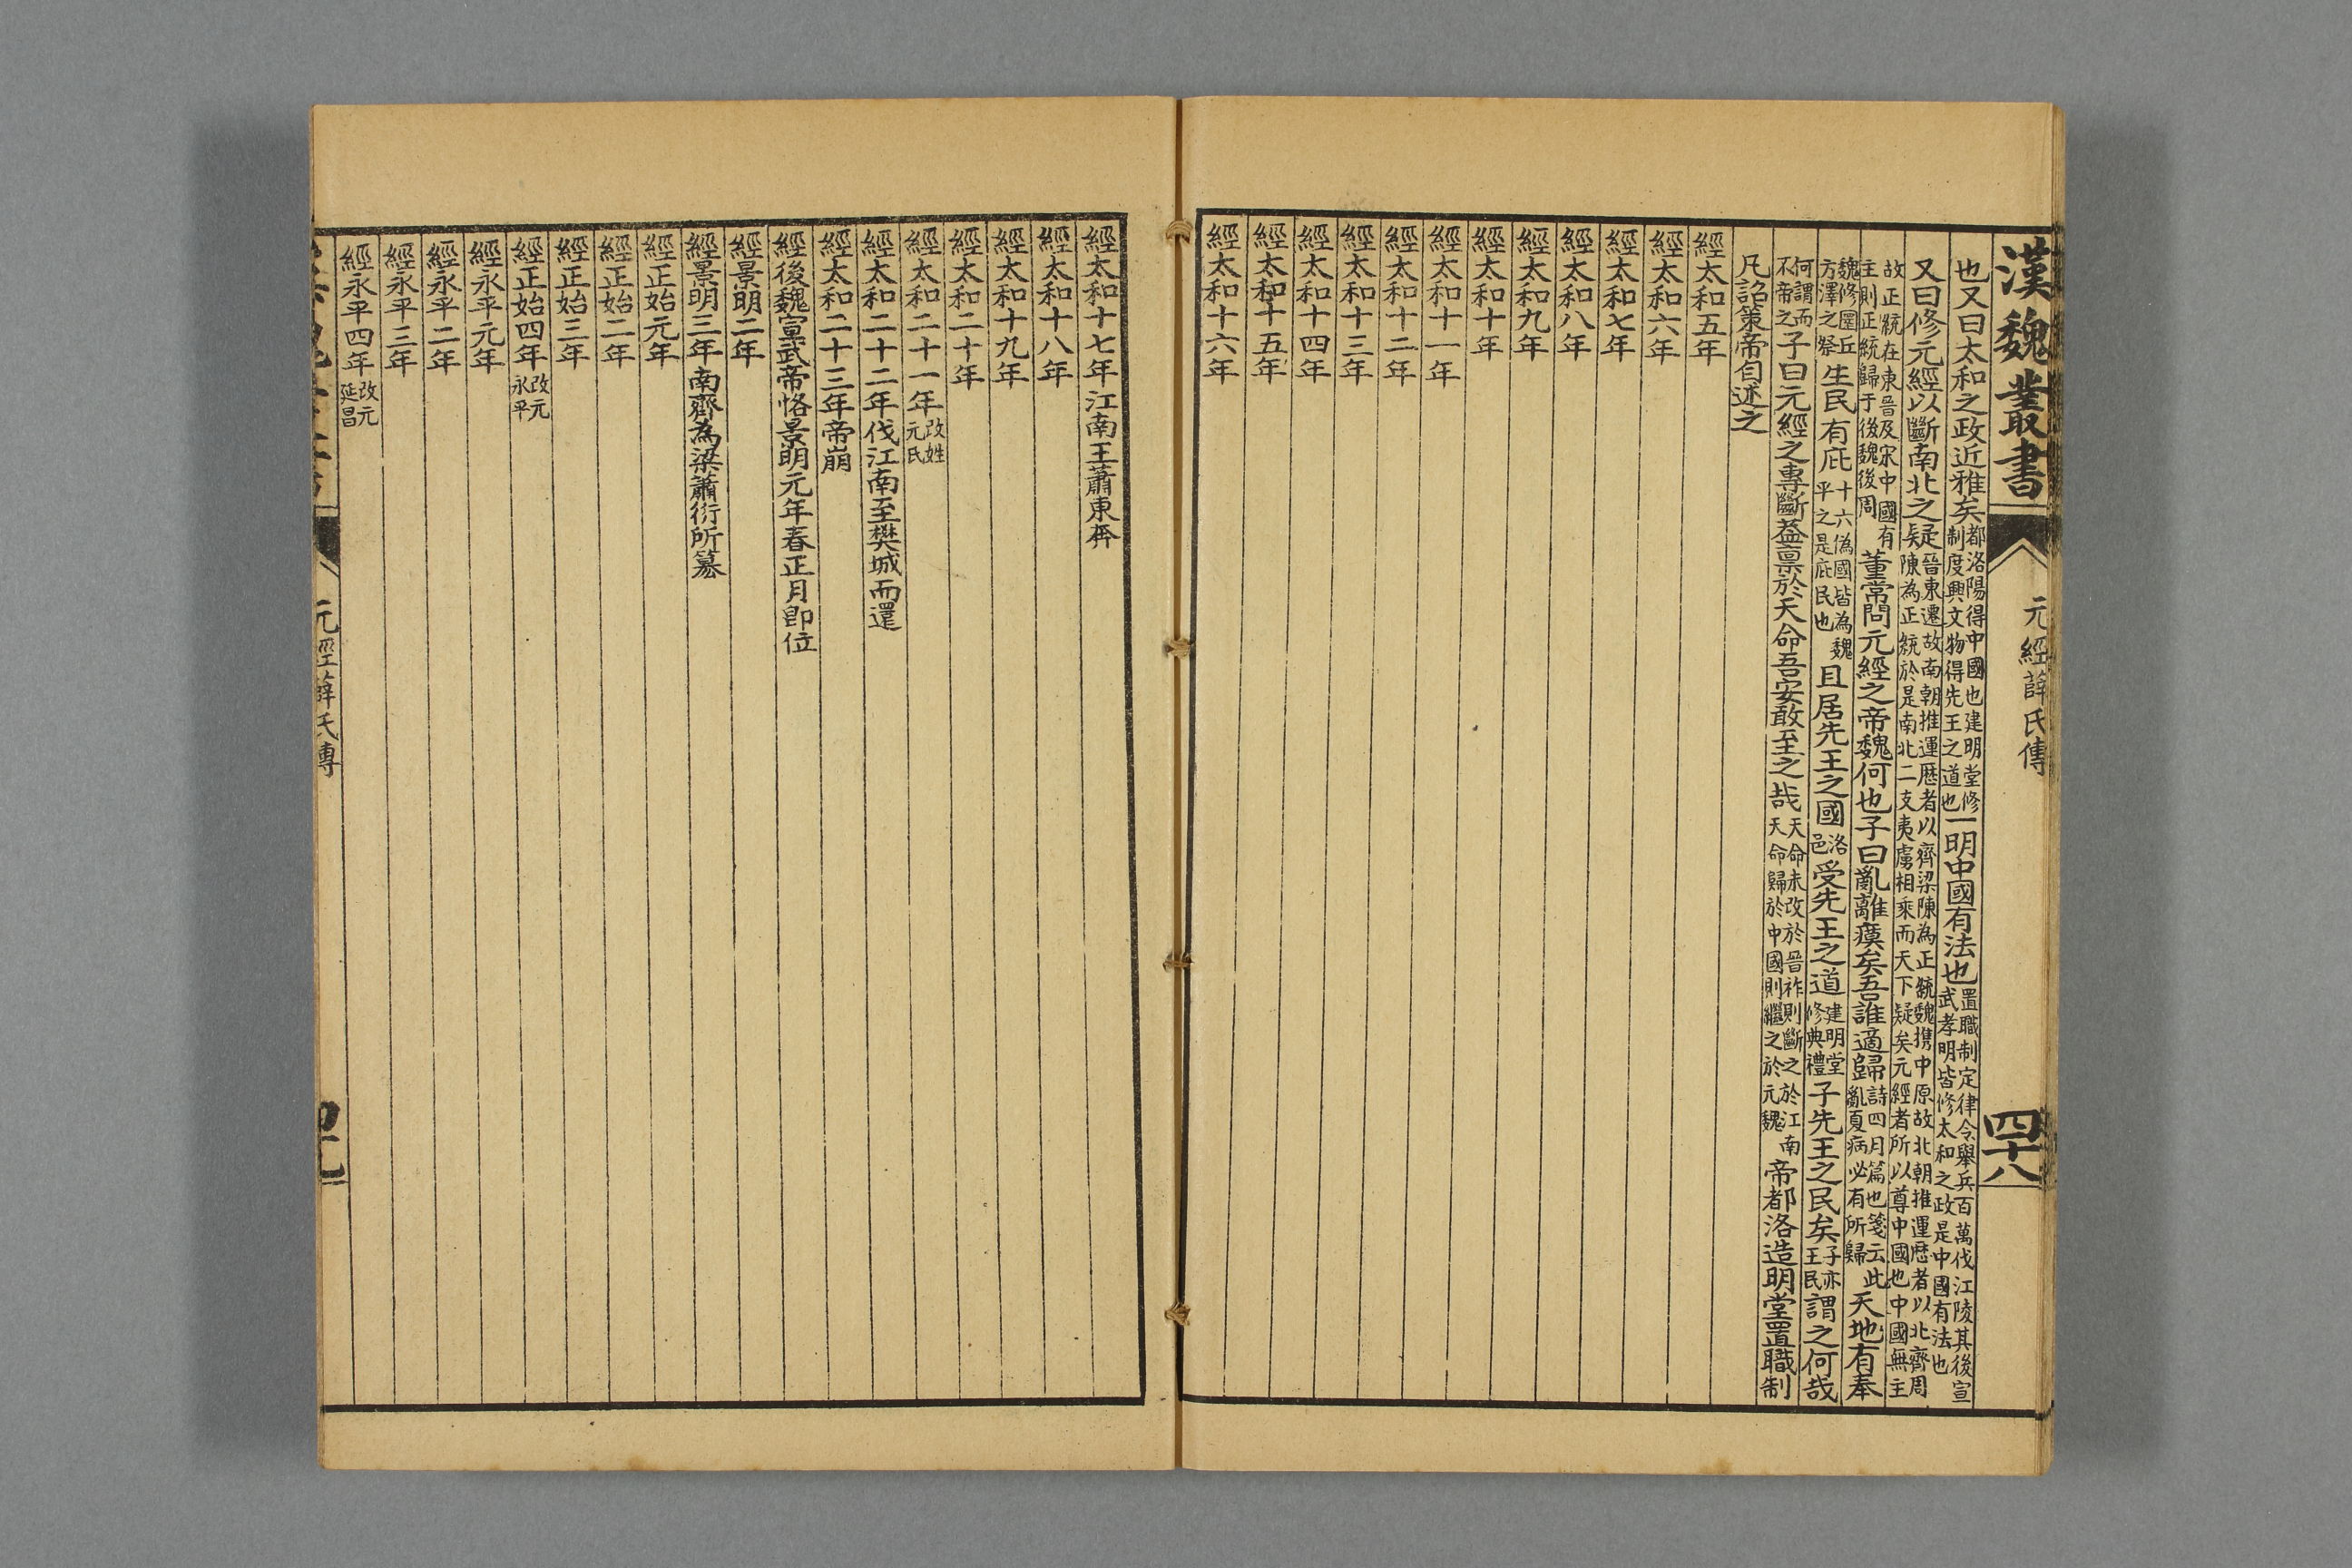 漢魏叢書 元經薛氏傳 四十八
也又曰太和之政近雅矣都洛陽得中國也建明堂修制度興文物得先王之道也一明中國有法也置職制定律令舉兵百萬伐江陵其後宣武孝明皆修太和之政是中國有法也
又曰修元經以斷南北之疑晉東遷故南朝推運歷者以齊梁陳為正統魏攜中原故北朝推運歷者以北齊周陳為正統於是南北二支夷虜相乘而天下疑矣元經者所以尊中國也中國無主
故正統在東晉及宋中國有主則正統歸于後魏後周董常問元經之帝魏何也子曰亂離瘼矣吾誰適歸詩四月篇也箋云此亂夏病必有所歸天地有奉
魏修圜丘方澤之祭生民有庇十六偽國皆為魏平之是庇民也且居先王之國洛邑受先王之道建明堂修典禮子先王之民矣子亦王民謂之何哉
何謂而不帝之子曰元經之專斷蓋稟於天命吾安敢至之哉天命未改於晉祚則斷之於江南天命歸於中國則繼之於元魏帝都洛造明堂置職制
凡詔策帝自述之
經太和五年
經太和六年
經太和七年
經太和八年
經太和九年
經太和十年
經太和十一年
經太和十二年
經太和十三年
經太和十四年
經太和十五年
經太和十六年
經太和十七年江南王蕭東奔
經太和十八年
經太和十九年
經太和二十年
經太和二十一年改姓元氏
經太和二十二年伐江南至樊城而還
經太和二十三年帝崩
經後魏宣武帝恪景明元年春正月卽位
經景明二年
經景明三年南齊為梁蕭衍所篡
經正始元年
經正始二年
經正始三年
經正始四年改元永平
經永平元年
經永平二年
經永平三年
經永平四年改元延昌
元經薛氏傳